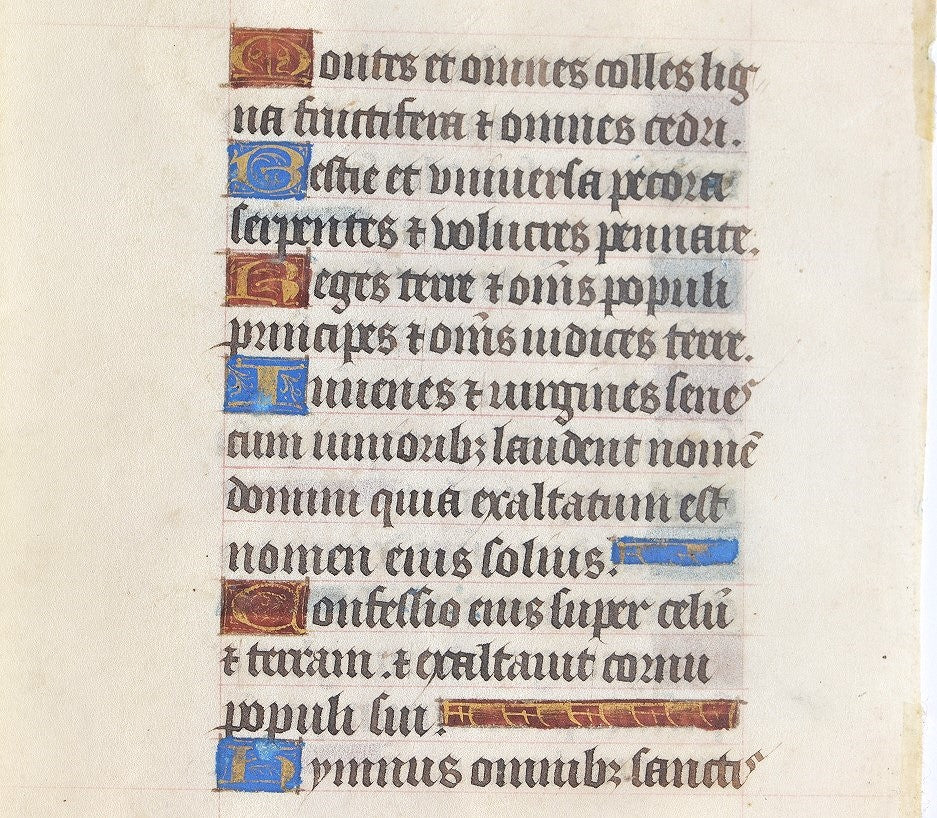 Montes et omnes colles lig
na fructifera ⁊ omnes cedri.
Bestie et vniuersa pecora
serpentes ⁊ volucres pennate.
Reges terre ⁊ om̄s populi
principes ⁊ om̄s iudices terre.
Iuuenes ⁊ uirgines senes
cum iunioribꝫ laudent nomē
domini quia exaltatum est
nomen eius solius.
Confessio eius super celū
⁊ terram . ⁊ exaltauit cornu
populi sui.
Hymnus omnibꝫ sanctis